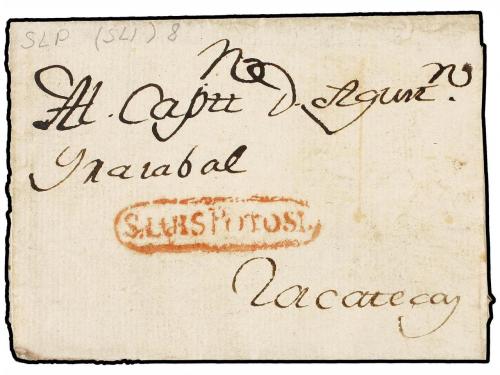 SLP (SLI) 8
Al Capⁿ D. Agunⁿ.
Ynarabal
S.LUIS POTOSI.
Zacatecas